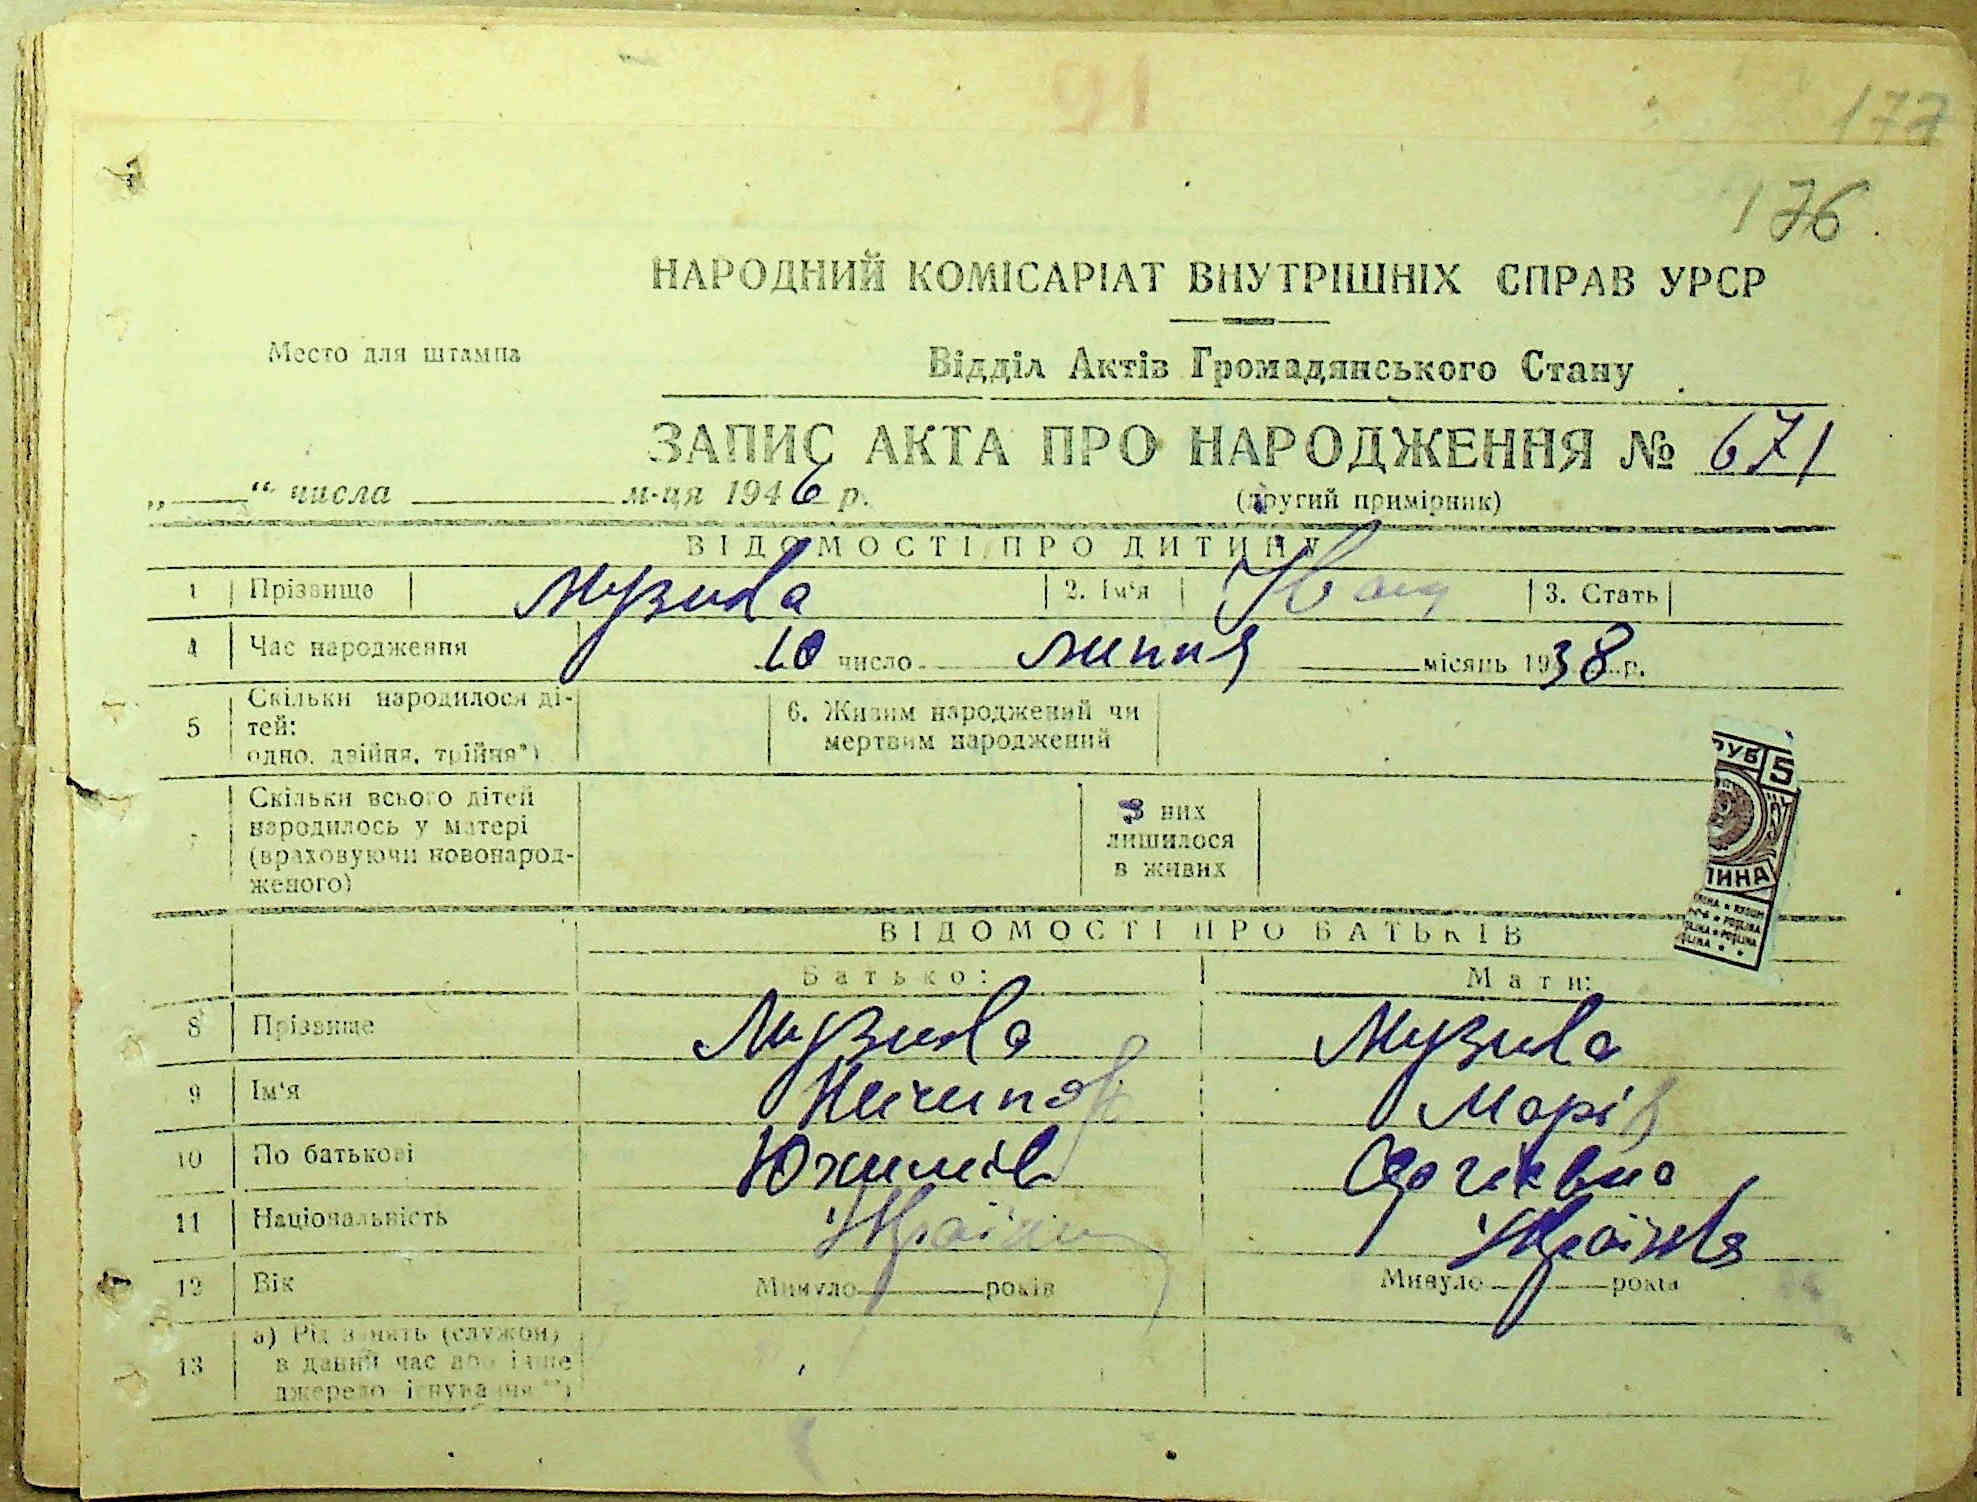 91
177
176.
НАРОДНИЙ КОМІСАРІАТ ВНУТРІШНІХ СПРАВ УРСР
Место для штампа
Відділ Актів Громадянського Стану
ЗАПИС АКТА ПРО НАРОДЖЕННЯ № 671
„ “ числа м-ця 1946 р. (другий примірник)
ВІДОМОСТІ ПРО ДИТИНУ
1 Прізвище Музика 2. Ім'я Іван 3. Стать
4 Час народження 10 число липня місяць 1938 р.
5 Скільки народилося ді-
тей:
одно, двійня, трійня*)
6. Живим народжений чи
мертвим народжений
7 Скільки всього дітей
народилось у матері
(враховуючи новонарод-
женого)
З них
лишилося
в живих
РУБ 5
ВІДОМОСТІ ПРО БАТЬКІВ
Батько: Мати:
8 Прізвище Музика Музика
9 Ім'я Ничипор Марія
10 По батькові Юхимів Сергіївна
11 Національність Українець Українка
12 Вік Минуло років Минуло років
13 а) Рід занять (служби)
в даний час або інше
джерело існування**)